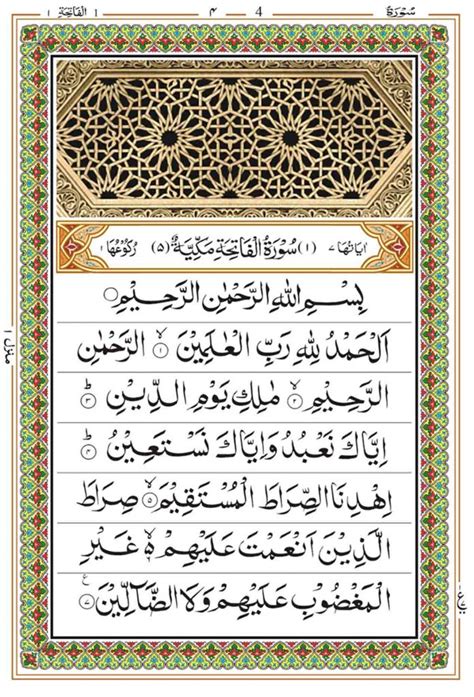 سُوْرَةٌ 4 ۴ اَلْفَاتِحَةِ ١
اٰيَاتُهَا ٧ (١) سُوْرَةُ الْفَاتِحَةِ مَكِّيَّةٌ (٥) رُكُوْعُهَا ١
بِسْمِ اللهِ الرَّحْمٰنِ الرَّحِيْمِ
اَلْحَمْدُ لِلّٰهِ رَبِّ الْعٰلَمِيْنَ ۙ‏﴿١﴾ الرَّحْمٰنِ
الرَّحِيْمِ ۙ‏﴿٢﴾ مٰلِكِ يَوْمِ الدِّيْنِ ؕ‏﴿٣﴾
اِيَّاكَ نَعْبُدُ وَاِيَّاكَ نَسْتَعِيْنُ ؕ‏﴿٤﴾
اِهْدِنَا الصِّرَاطَ الْمُسْتَقِيْمَ ۙ‏﴿٥﴾ صِرَاطَ
الَّذِيْنَ اَنْعَمْتَ عَلَيْهِمْ ۙ۬ غَيْرِ
الْمَغْضُوْبِ عَلَيْهِمْ وَلَا الضَّآلِّيْنَ ﴿٧﴾
منزل ١